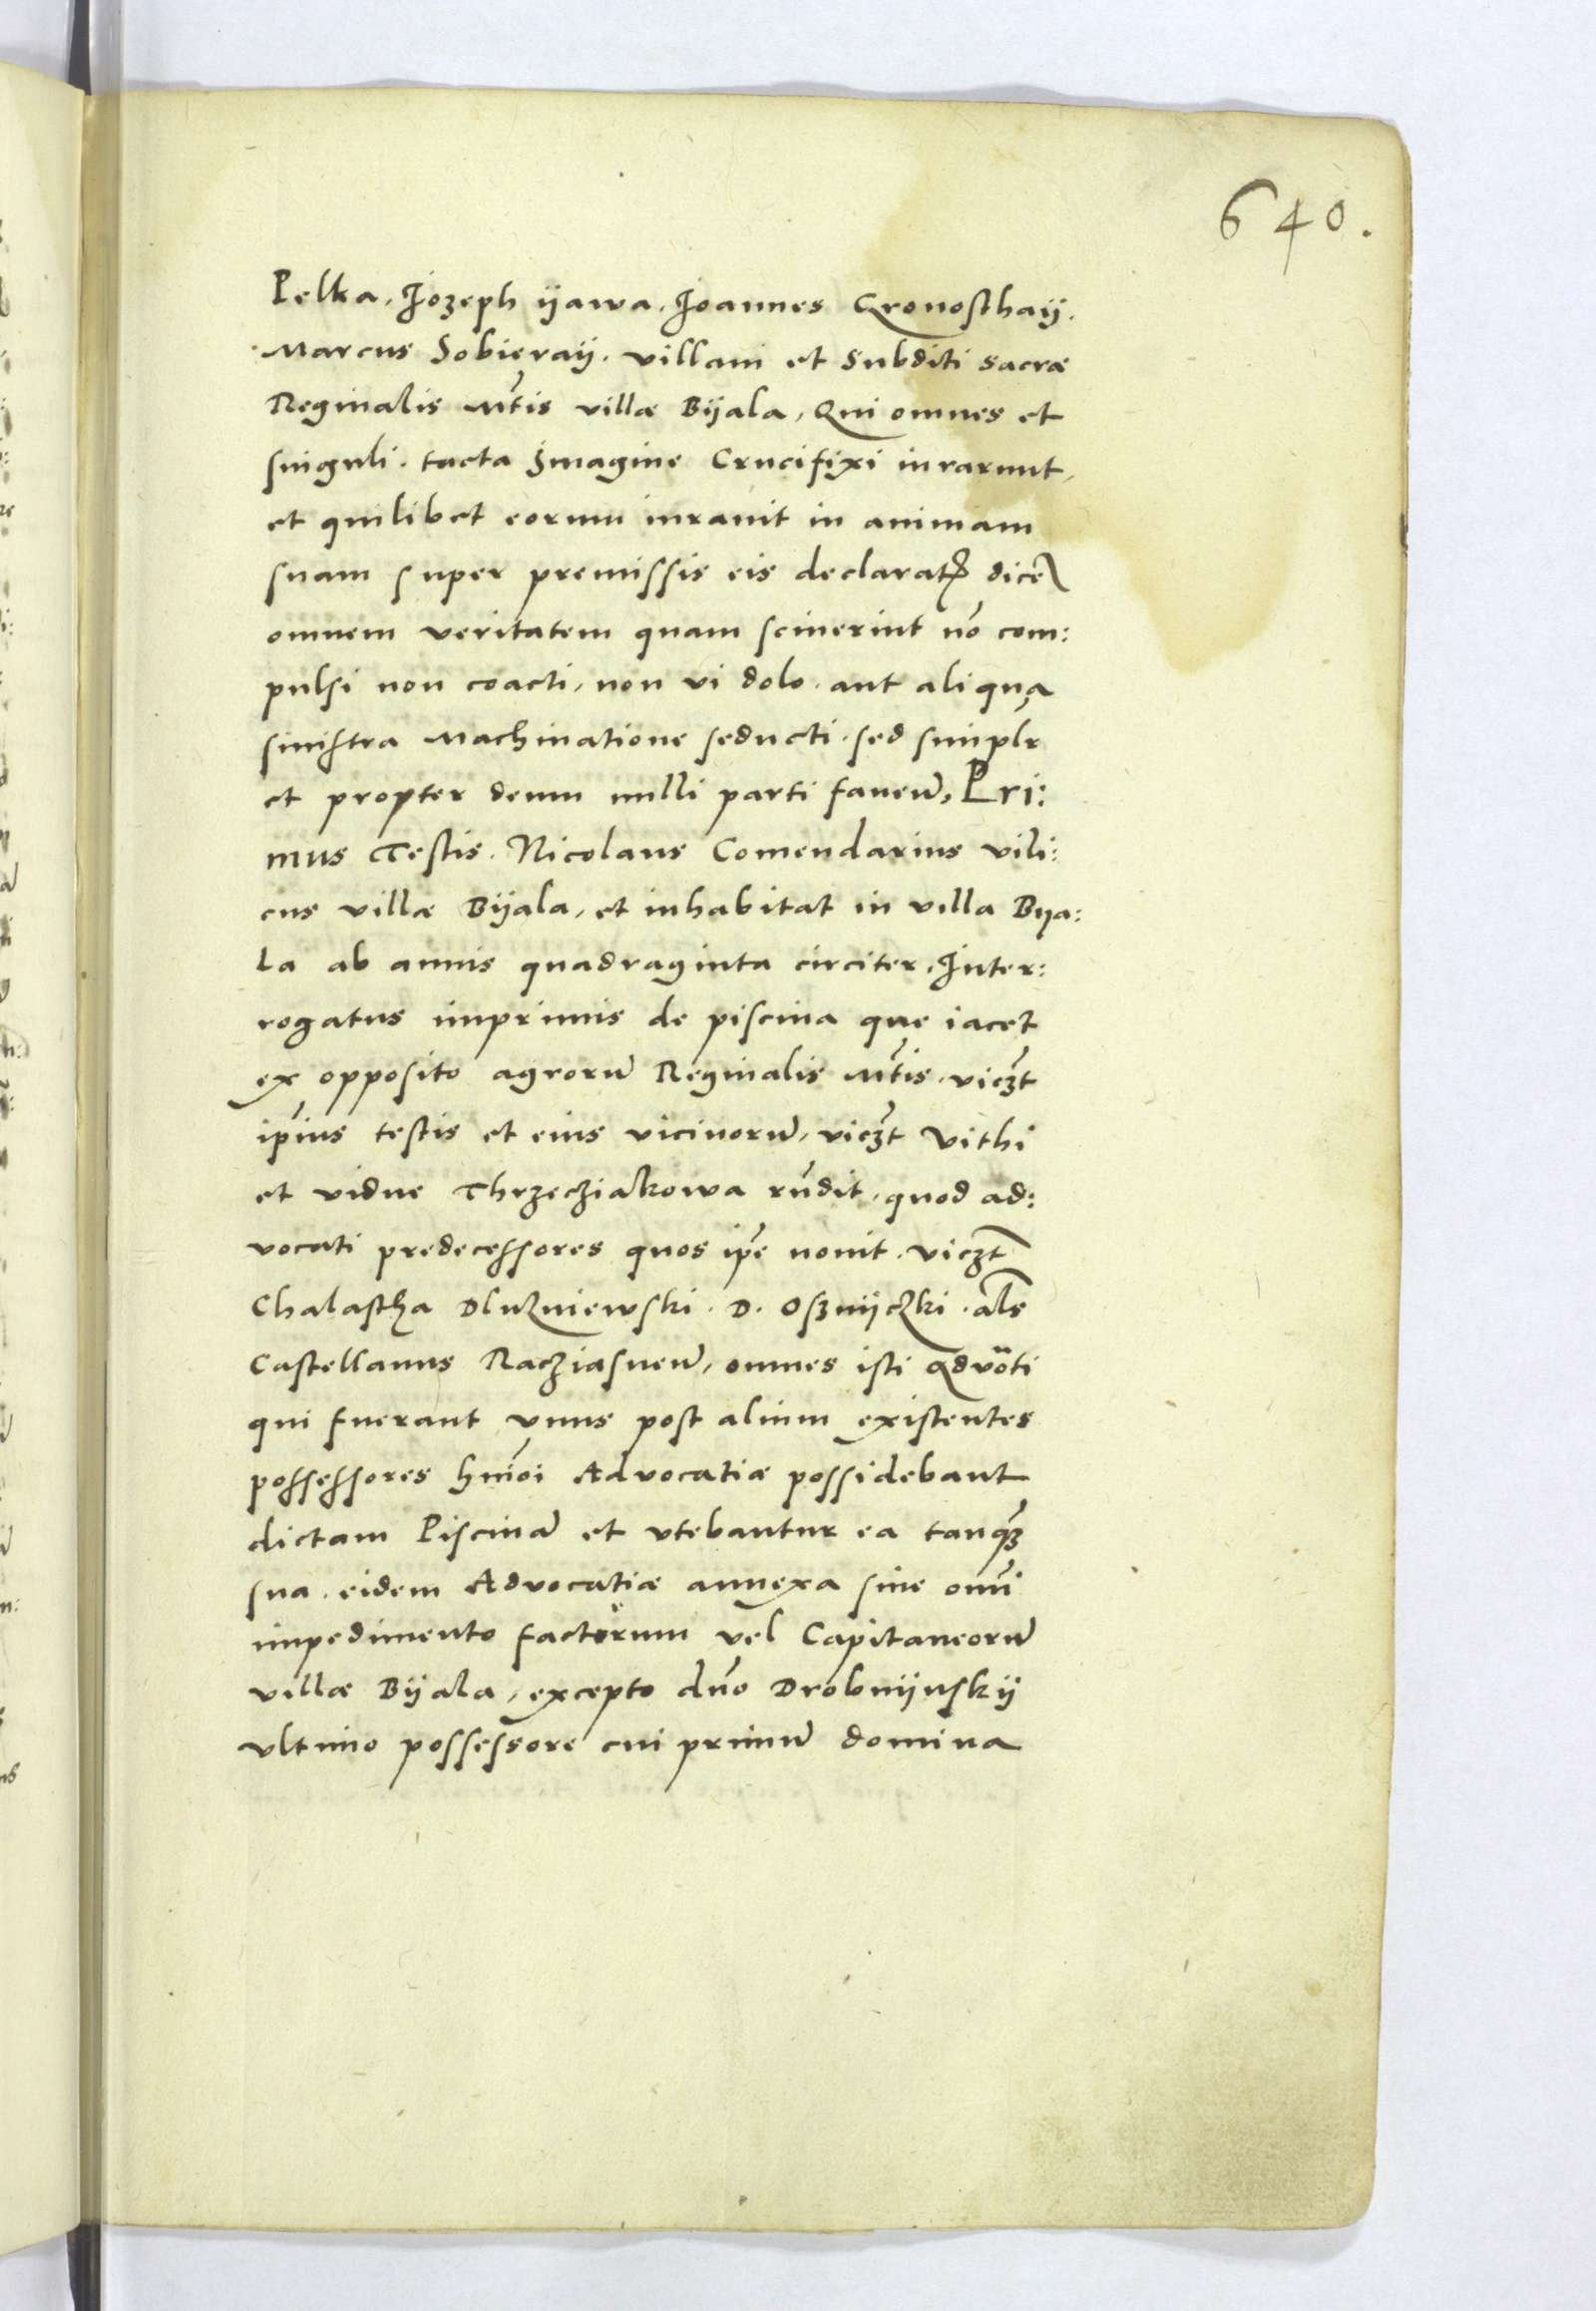 640.
Pelka, Jozeph ÿawa, Joannes Qronosthaÿ.
Marcus Sobieraÿ. villani et Subditi sacræ
Reginalis Mt̃is villæ Bÿala, Qui omnes et
singuli. tacta Jmagine Crucifixi iurarunt,
et quilibet eorum iurauit in animam
suam super premissis eis declarat
omnem veritatem quam sciuerint nõ com:
pulsi non coacti, non vi dolo. aut aliqua
sinistra Machinatione seducti. sed simplr
et propter deum nulli parti fauen̄, Pri:
mus Testis. Nicolaus Comendarius vili:
cus villæ Bÿala, et inhabitat in villa Bya:
la ab annis quadraginta circiter, Inter:
rogatus imprimis de piscina que iacet
ex opposito agrorū Reginalis Mt̃is. vicz̃t
ip̃ius testis et eius vicinorū, vicz̃t Vithi
et vidue Thrzecziakowa rñdit, quod ad:
vocati predecessores quos ip̃e nouit. vicz̃t
Chalastha Dluzniewski. D. Osznÿczki. al̃s
Castellanus Racziasnen̄, omnes isti Advõti
qui fuerant vnus post alium existentes
possessores hm̃oi Advocatiæ possidebant
dictam Piscinā et vtebantur ea tanqz̃
sua. eidem Advocatiæ annexa sine omñi
impedimento factorum vel Capitaneorū
villæ Bÿala, excepto dño Drobnÿnskÿ
vltimo possessore cui primū domina